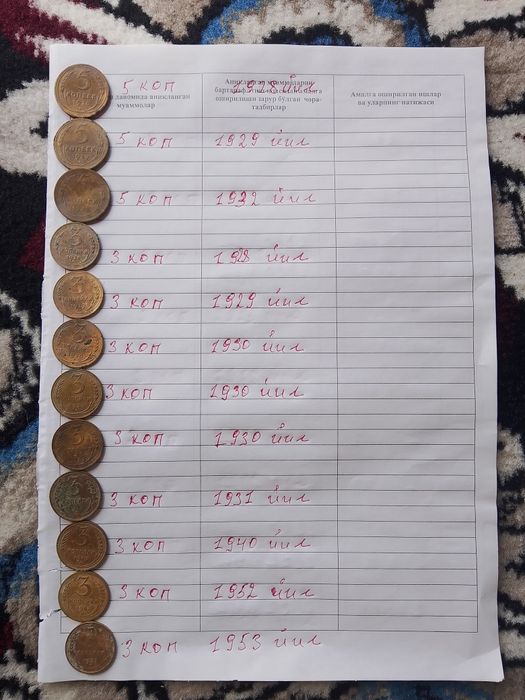 5 коп
давомида аниқланган муаммолар
Аниқланган муаммоларни
оширилиши зарур бўлган чора-
тадбирлар
Амалга оширилган ишлар
ва уларнинг натижаси
5 коп 1929 йил
5 коп 1932 йил
3 коп 1928 йил
3 коп 1929 йил
3 коп 1930 йил
3 коп 1930 йил
3 коп 1930 йил
3 коп 1931 йил
3 коп 1940 йил
3 коп 1952 йил
3 коп 1953 йил